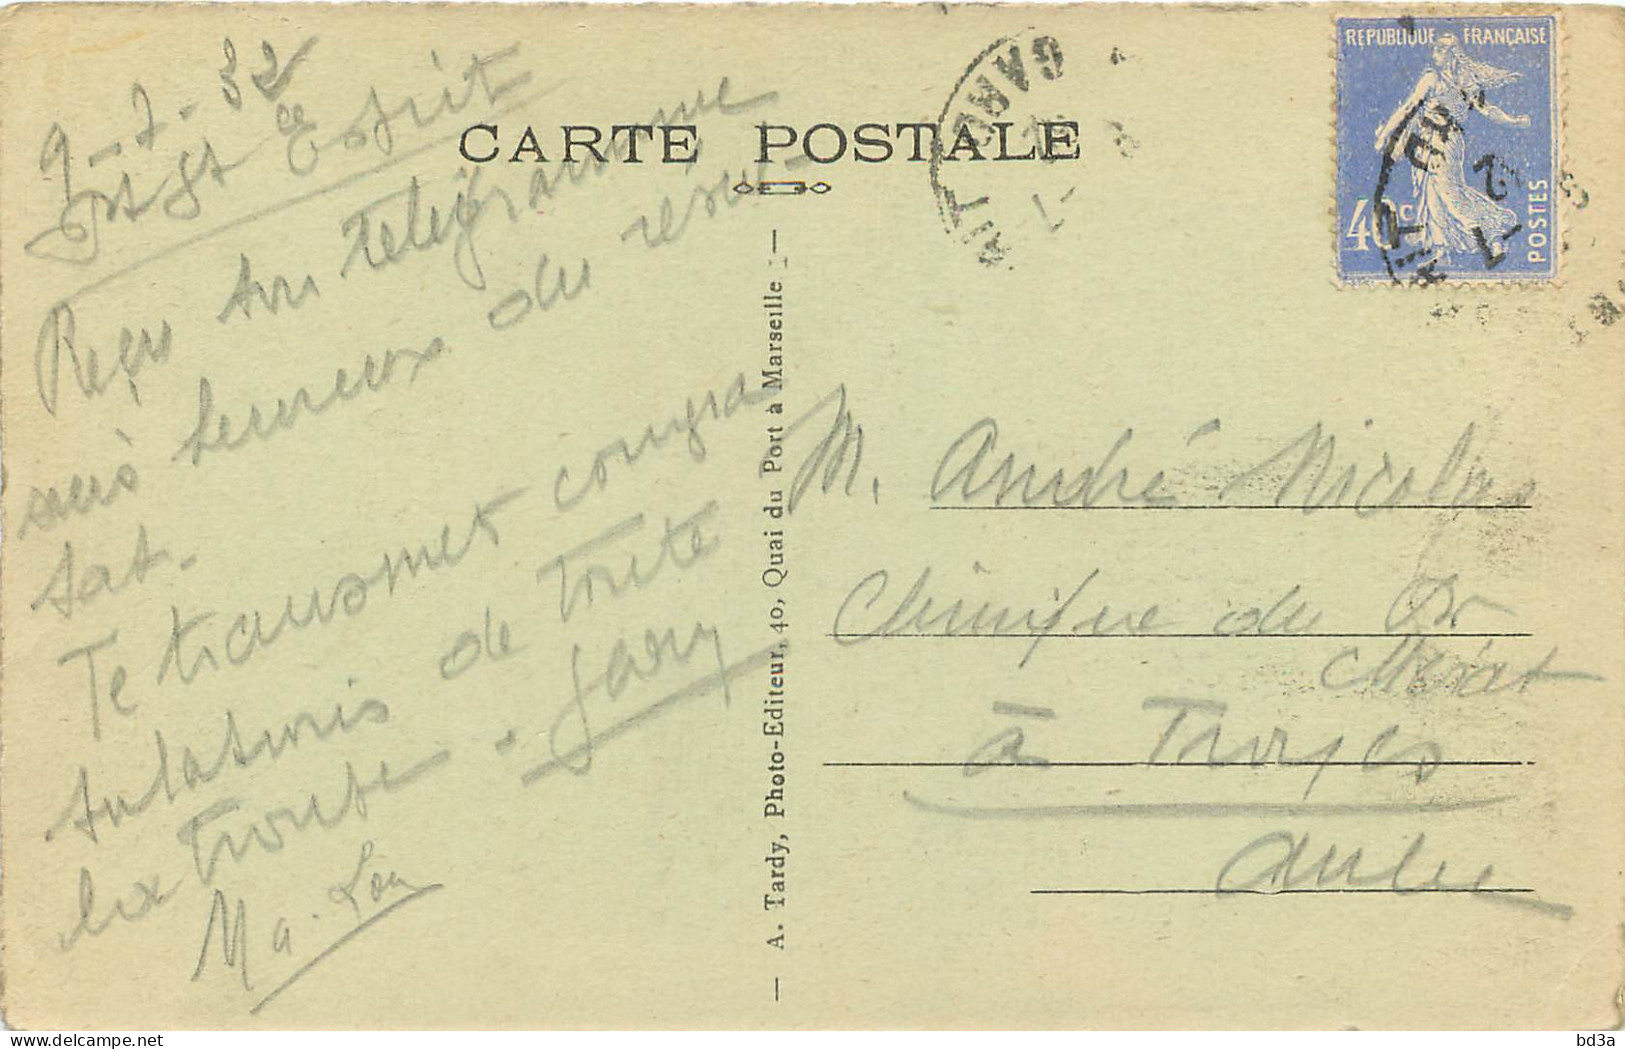 9-7-32
Pt St Esprit
CARTE POSTALE
Reçu ton télégramme
suis heureux du résul-
tat.
Te transmet congra
tulations de toute
la troupe.
Gary
Ma. Lou
A. Tardy, Photo-Editeur, 40, Quai du Port à Marseille
REPUBLIQUE FRANÇAISE
40 c
POSTES
GARD
M. André Nicolas
Clinique du Dr
Mérat
à Troyes
Aube
bd3a